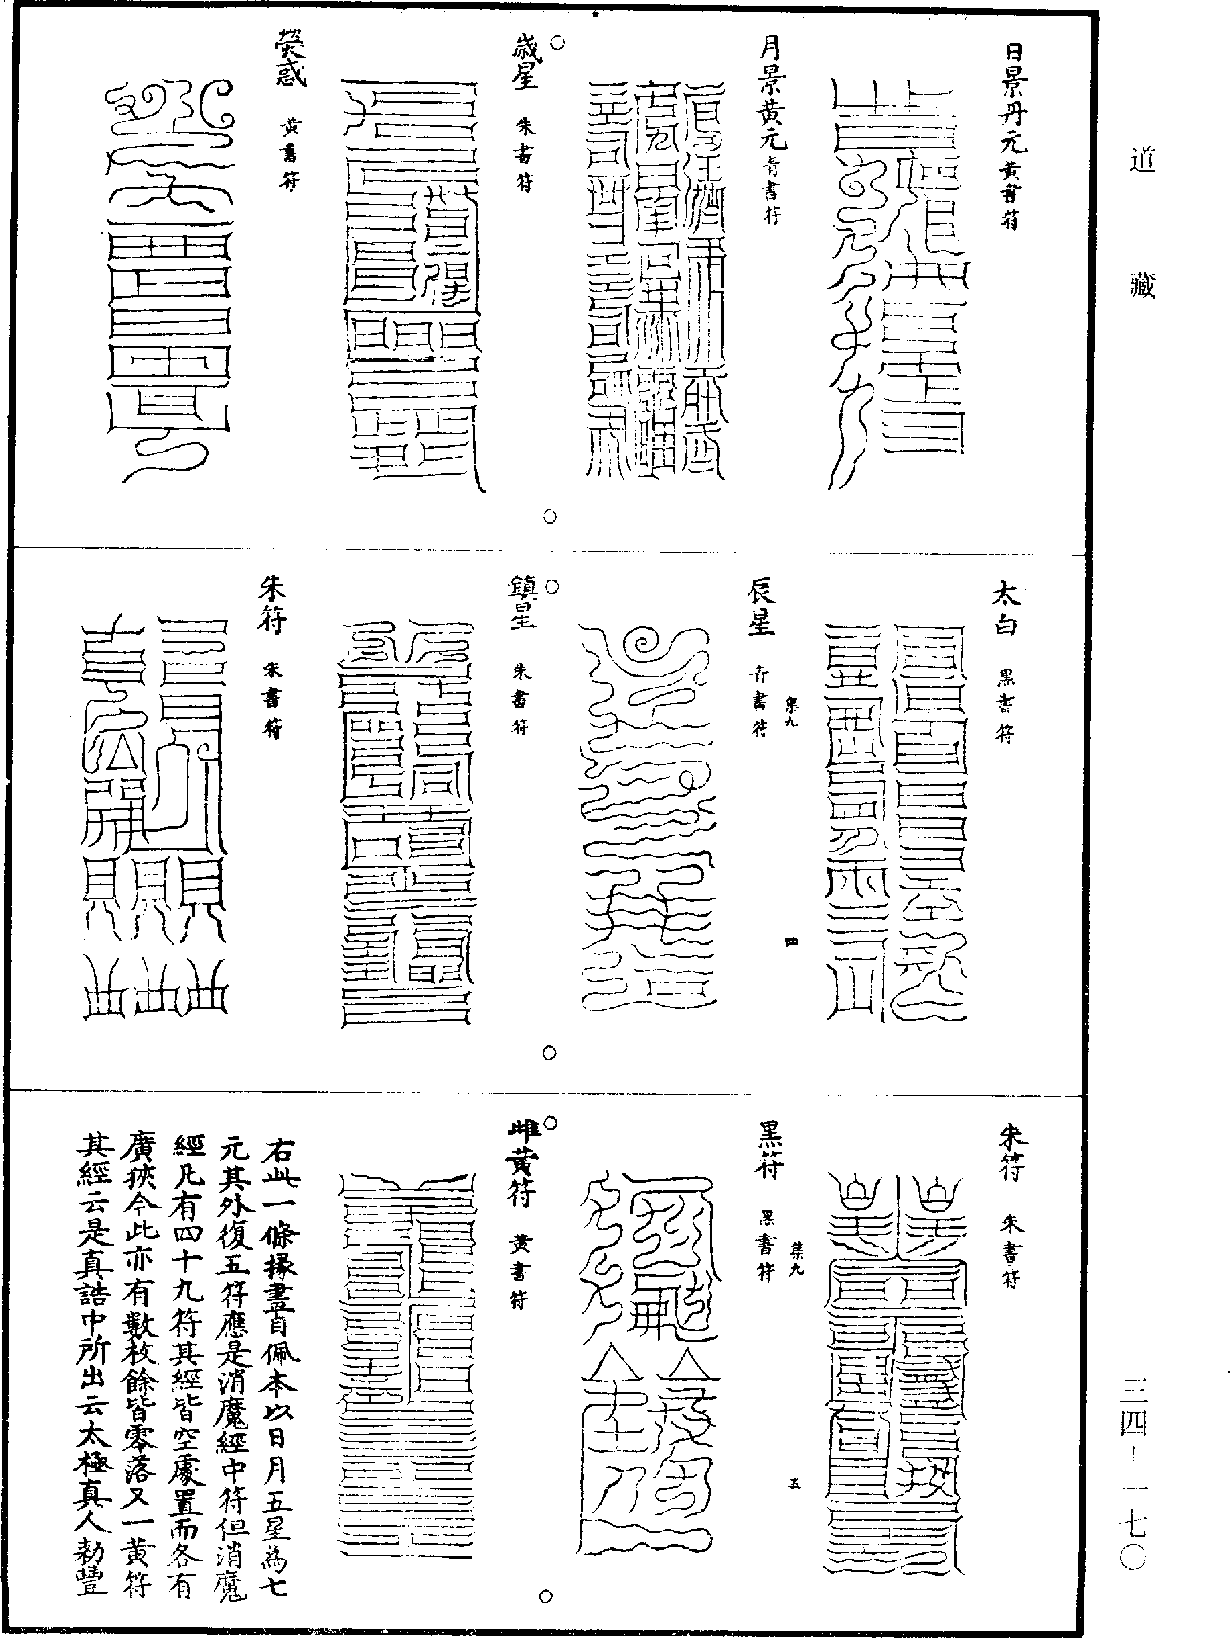 道藏
日景丹元 黃書符
月景黃元 青書符
歲星 朱書符
熒惑 黃書符
太白 黑書符
集九 四
辰星 青書符
鎮星 朱書符
朱符 朱書符
朱符 朱書符
集九 五
黑符 黑書符
雌黃符 黃書符
右此一條掾書首佩本以日月五星為七
元其外復五符應是消魔經中符但消魔
經凡有四十九符其經皆空處置而各有
廣狹今此亦有數枚餘皆零落又一黃符
其經云是真誥中所出云太極真人勑豐
三四–一七〇